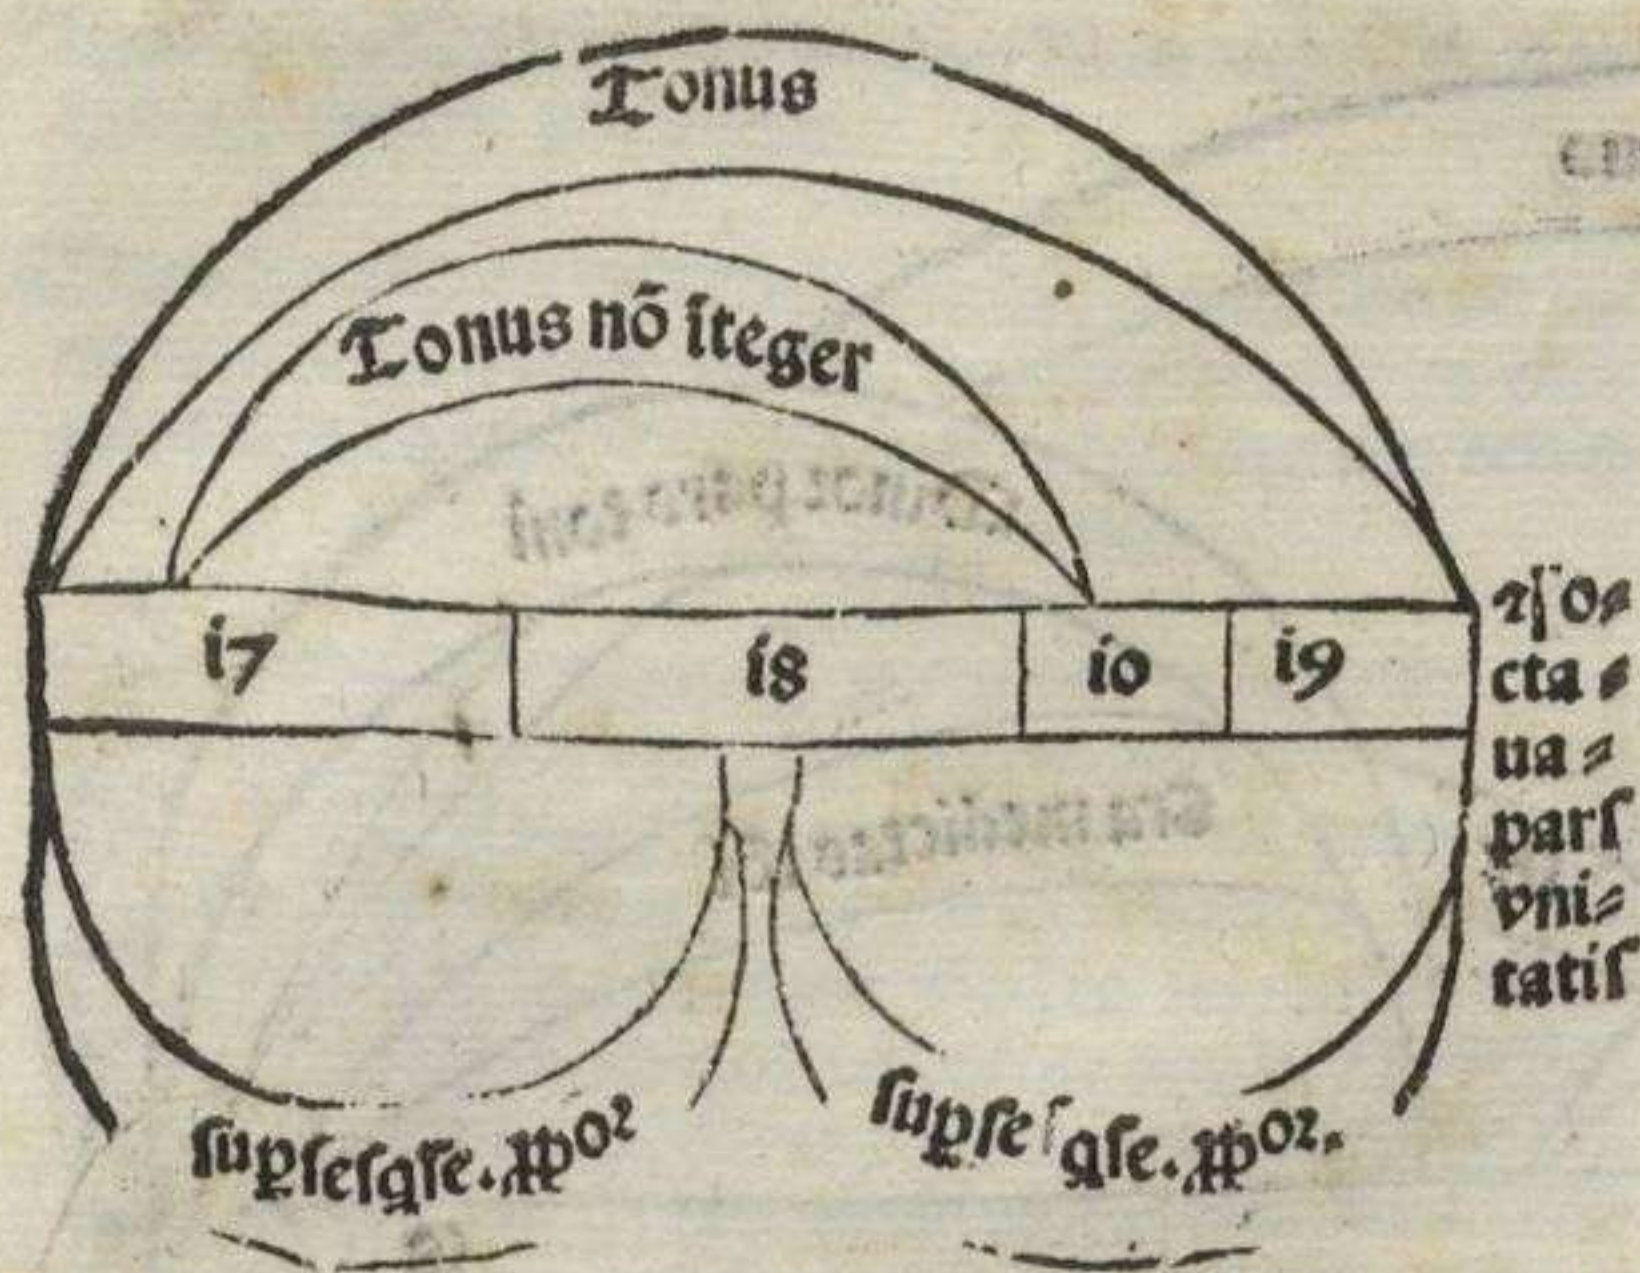 Tonus
Tonus nõ īteger
i7 i8 io i9
⁊ſ o⸗
cta⸗
ua⸗
parſ
vni⸗
tatiſ
ſuꝑſeſqſe. ꝓpoꝛ
ſuꝑſeſqſe. ꝓpoꝛ.